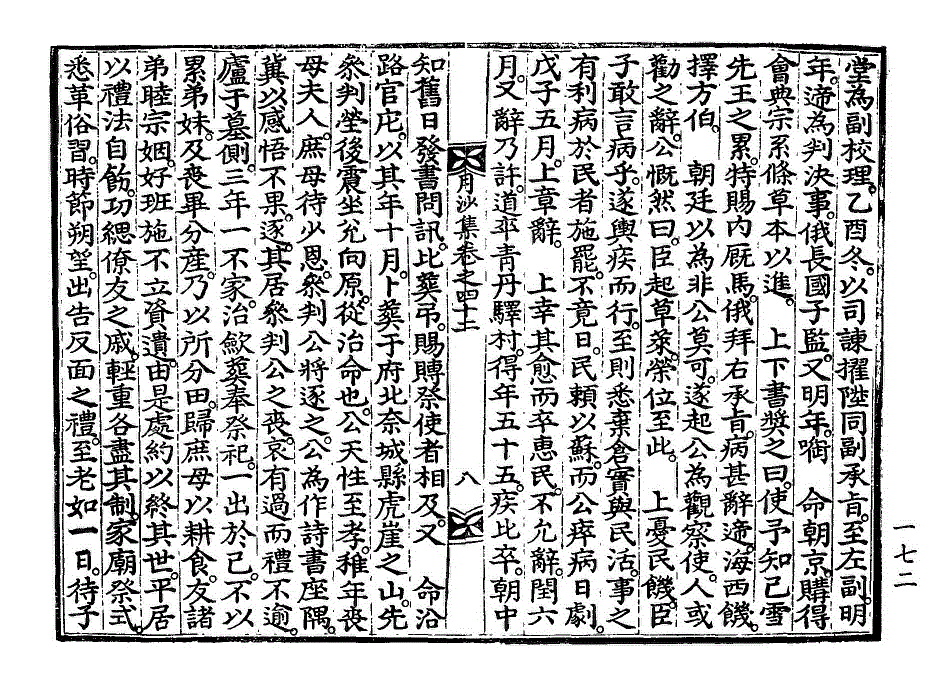 堂為副校理。乙酉冬。以司諫擢陞同副承旨。至左副。明
年。遞為判決事。俄長國子監。又明年。銜 命朝京。購得
會典宗系條草本以進。 上下書奬之曰。使予知已雪
先王之累。特賜內廐馬。俄拜右承旨。病甚辭遞。海西饑。
擇方伯。 朝廷以為非公莫可。遂起公為觀察使。人或
勸之辭。公慨然曰。臣起草萊。榮位至此。 上憂民饑。臣
子敢言病乎。遂輿疾而行。至則悉棄倉實與民活。事之
有利病於民者施罷。不竟日。民賴以蘇。而公瘁病日劇。
戊子五月。上章辭。 上幸其愈而卒惠民。不允辭。閏六
月。又辭乃許。道卒靑丹驛村。得年五十五。疾比卒。朝中
月沙集卷之四十二 八
知舊日發書問訊。比葬。弔賜賻祭使者相及。又 命沿
路官庀。以其年十月。卜葬于府北奈城縣虎崖之山。先
參判塋後震坐兌向原。從治命也。公天性至孝。稚年喪
母夫人。庶母待少恩。參判公將逐之。公為作詩書座隅。
冀以感悟不果。逐。其居參判公之喪。哀有過而禮不逾。
廬于墓側。三年一不家。治歛葬奉祭祀。一出於己。不以
累弟妹。及喪畢分產。乃以所分田。歸庶母以耕食。友諸
弟睦宗姻。好班施不立資遺。由是處約以終其世。平居
以禮法自飭。功緦僚友之戚。輕重各盡其制。家廟祭式。
悉革俗習。時節朔望。出告反面之禮。至老如一日。待子
一七二